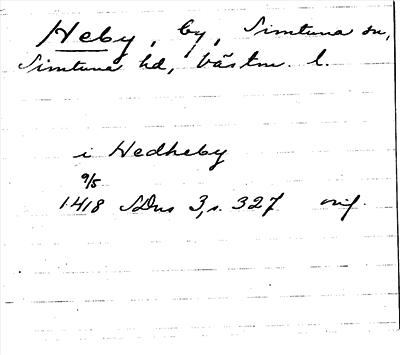 Heby, by, Simtuna sn,
Simtuna hd, Västm. l.
i Hedheby
9/5
1418 SDns 3, s. 327 orig.